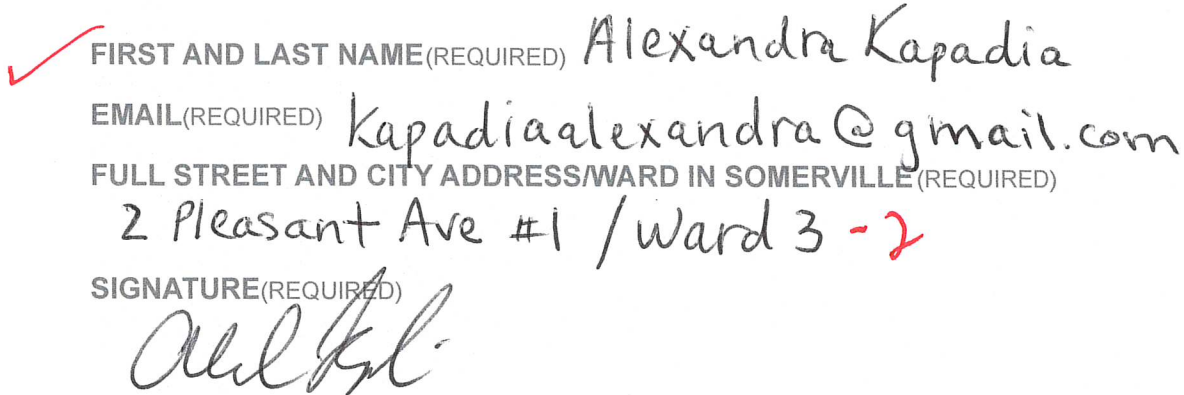 FIRST AND LAST NAME(REQUIRED) Alexandra Kapadia
EMAIL(REQUIRED) kapadiaalexandra@gmail.com
FULL STREET AND CITY ADDRESS/WARD IN SOMERVILLE(REQUIRED)
2 Pleasant Ave #1 / Ward 3 -2
SIGNATURE(REQUIRED)